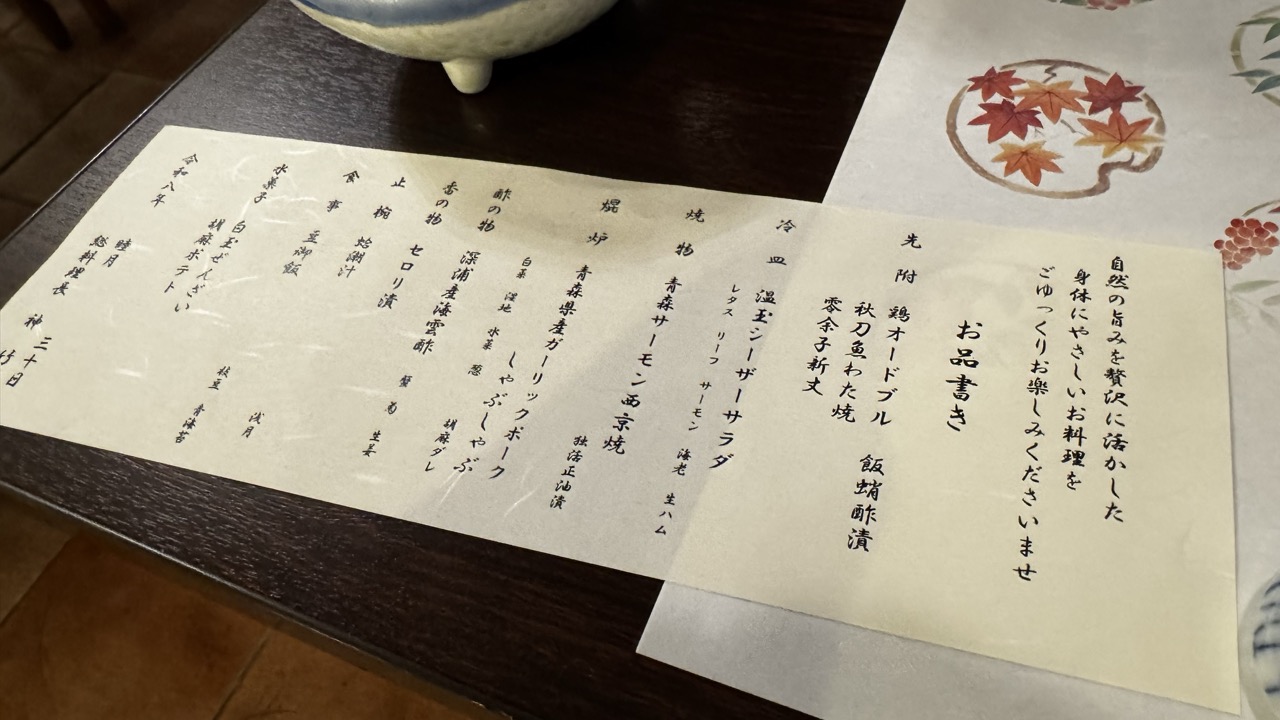 自然の旨みを贅沢に活かした
身体にやさしいお料理を
ごゆっくりお楽しみくださいませ
お品書き
先附 鶏オードブル 飯蛸酢漬
秋刀魚わた焼
零余子新丈
冷皿 温玉シーザーサラダ
レタス リーフ サーモン 海老 生ハム
焼物 青森サーモン西京焼
独活正油漬
焜炉 青森県産ガーリックポーク
しゃぶしゃぶ
白菜 湿地 水菜 葱 胡麻ダレ
酢の物 深浦産海雲酢 蟹 菊 生姜
香の物 セロリ漬
止椀 蛤潮汁 浅月
食事 豆御飯 枝豆 青海苔
水菓子 白玉ぜんざい
胡麻ポテト
令和八年 睦月 三十日
総料理長 神